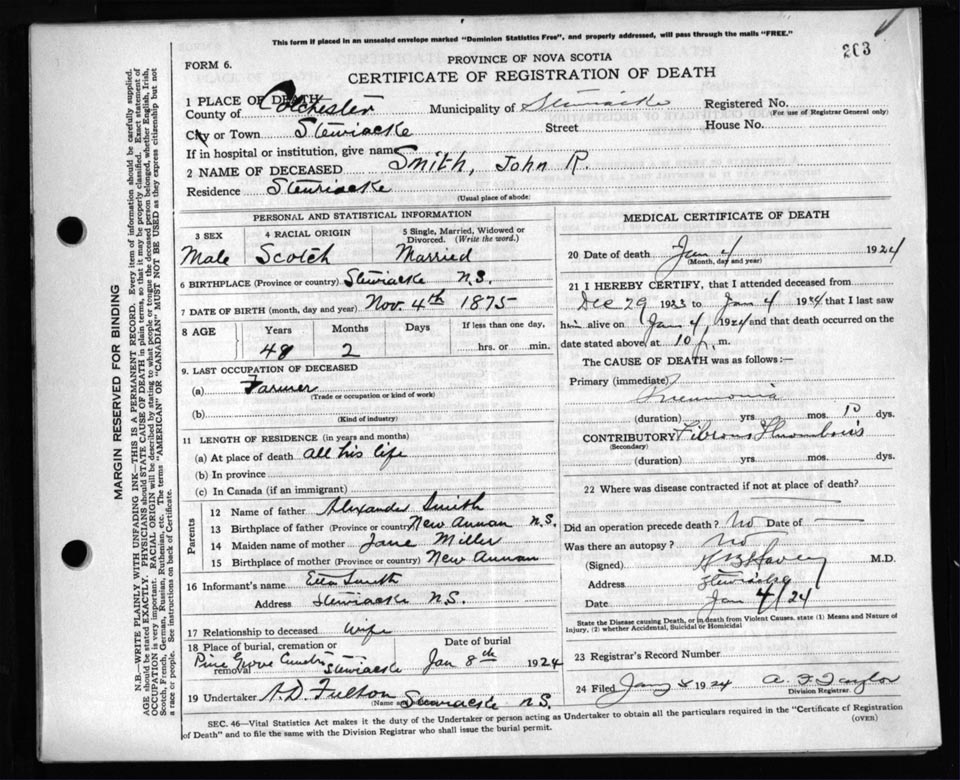 This form if placed in an unsealed envelope marked "Dominion Statistics Free", and properly addressed, will pass through the mails "FREE."
203
FORM 6.
PROVINCE OF NOVA SCOTIA
CERTIFICATE OF REGISTRATION OF DEATH
1 PLACE OF DEATH
County of Colchester Municipality of Stewiacke Registered No.
(For use of Registrar General only)
City or Town Stewiacke Street House No.
If in hospital or institution, give name
2 NAME OF DECEASED Smith, John R.
Residence Stewiacke
(Usual place of abode)
MARGIN RESERVED FOR BINDING
N.B.—WRITE PLAINLY WITH UNFADING INK—THIS IS A PERMANENT RECORD. Every item of information should be carefully supplied.
AGE should be stated EXACTLY. PHYSICIANS should STATE CAUSE OF DEATH in plain terms, so that it may be properly classified. Exact statement of
OCCUPATION is very important. RACIAL ORIGIN will be described by stating to what people or tongue the deceased person belonged, whether English, Irish,
Scotch, French, German, Russian, Ruthenian, etc. The terms "AMERICAN" or "CANADIAN" MUST NOT BE USED as they express citizenship but not
a race or people. See instructions on back of Certificate.
PERSONAL AND STATISTICAL INFORMATION
3 SEX 4 RACIAL ORIGIN 5 Single, Married, Widowed or
Divorced. (Write the word.)
Male Scotch Married
6 BIRTHPLACE (Province or country) Stewiacke N.S.
7 DATE OF BIRTH (month, day and year) Nov. 4th 1875
8 AGE Years Months Days If less than one day,
48 2 hrs. or min.
9. LAST OCCUPATION OF DECEASED
(a) Farmer
(Trade or occupation or kind of work)
(b)
(Kind of industry)
11 LENGTH OF RESIDENCE (in years and months)
(a) At place of death all his life
(b) In province
(c) In Canada (if an immigrant)
Parents
12 Name of father Alexander Smith
13 Birthplace of father (Province or country) New Annan N.S.
14 Maiden name of mother Jane Miller
15 Birthplace of mother (Province or country) New Annan
16 Informant's name Smith
Address Stewiacke N.S.
17 Relationship to deceased Wife
18 Place of burial, cremation or Date of burial
removal Pine Grove Stewiacke Jan 8th 1924
19 Undertaker A.D. Fulton
Stewiacke N.S.
MEDICAL CERTIFICATE OF DEATH
20 Date of death Jan 4 1924
(Month, day and year)
21 I HEREBY CERTIFY, that I attended deceased from
Dec 29 1923 to Jan 4 1924 that I last saw
him alive on Jan 4, 1924 and that death occurred on the
date stated above, at 10 p. m.
The CAUSE OF DEATH was as follows:—
Primary (immediate)
Pneumonia
(duration) yrs. mos. 10 dys.
CONTRIBUTORY Fibrous Thrombosis
(Secondary)
(duration) yrs. mos. dys.
22 Where was disease contracted if not at place of death?
Did an operation precede death? No Date of —
Was there an autopsy? No
(Signed) M.D.
Address Stewiacke
Date Jan 4/24
State the Disease causing Death, or in death from Violent Causes, state (1) Means and Nature of
Injury, (2) whether Accidental, Suicidal or Homicidal
23 Registrar's Record Number
24 Filed Jany 1924 A. F. Taylor
Division Registrar.
SEC. 46—Vital Statistics Act makes it the duty of the Undertaker or person acting as Undertaker to obtain all the particulars required in the "Certificate of Registration
of Death" and to file the same with the Division Registrar who shall issue the burial permit. (OVER)